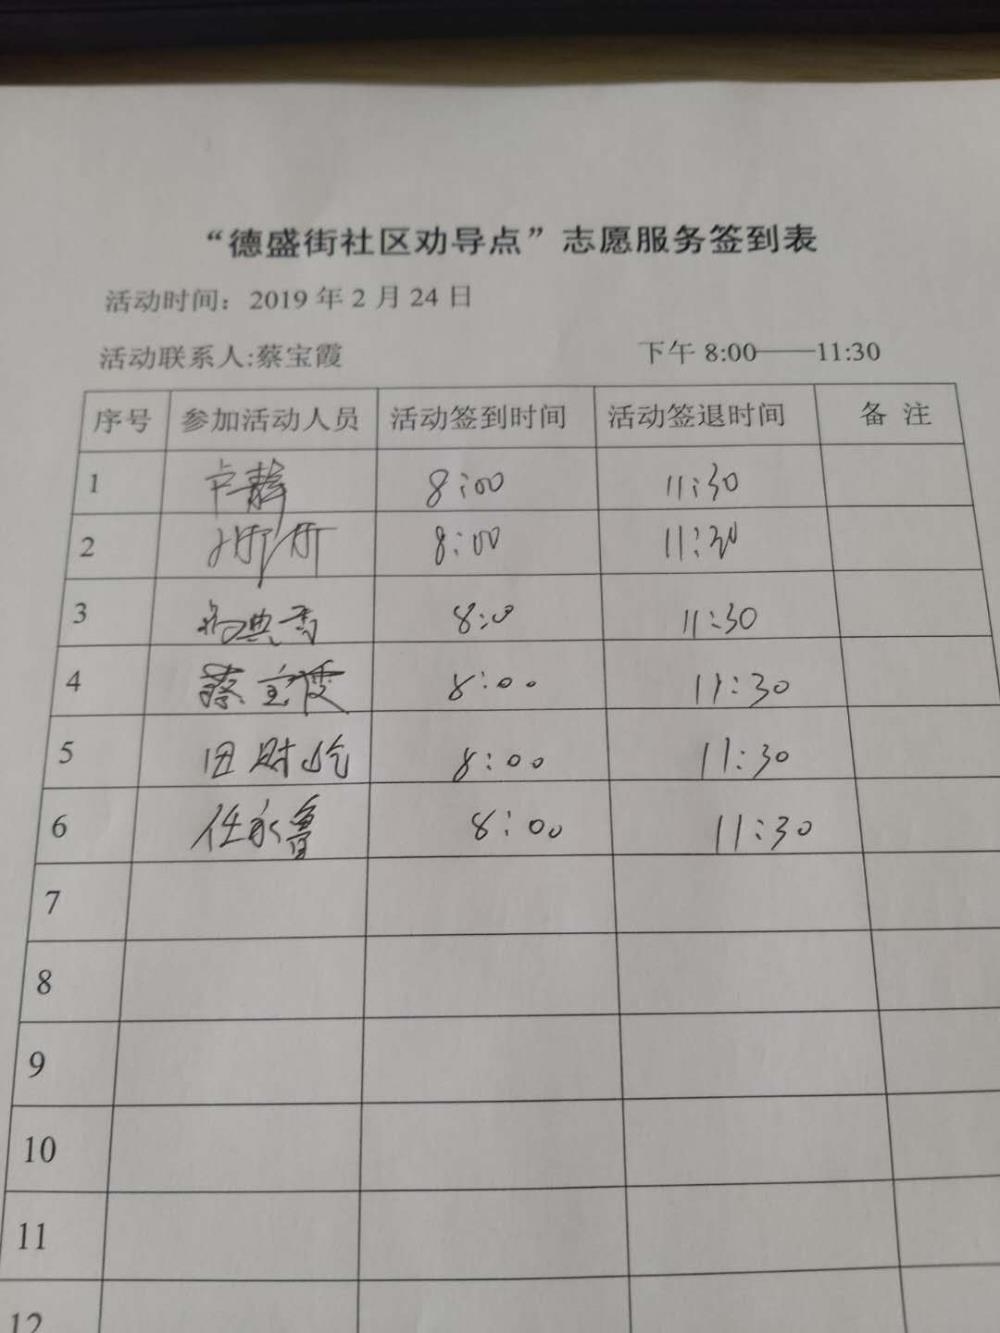 “德盛街社区劝导点”志愿服务签到表
活动时间：2019 年 2 月 24 日
活动联系人:蔡宝霞 下午 8:00——11:30
序号 参加活动人员 活动签到时间 活动签退时间 备 注
1 8:00 11:30
2 8:00 11:30
3 8:0 11:30
4 蔡宝霞 8:00 11:30
5 8:00 11:30
6 任永鲁 8:00 11:30
7
8
9
10
11
12